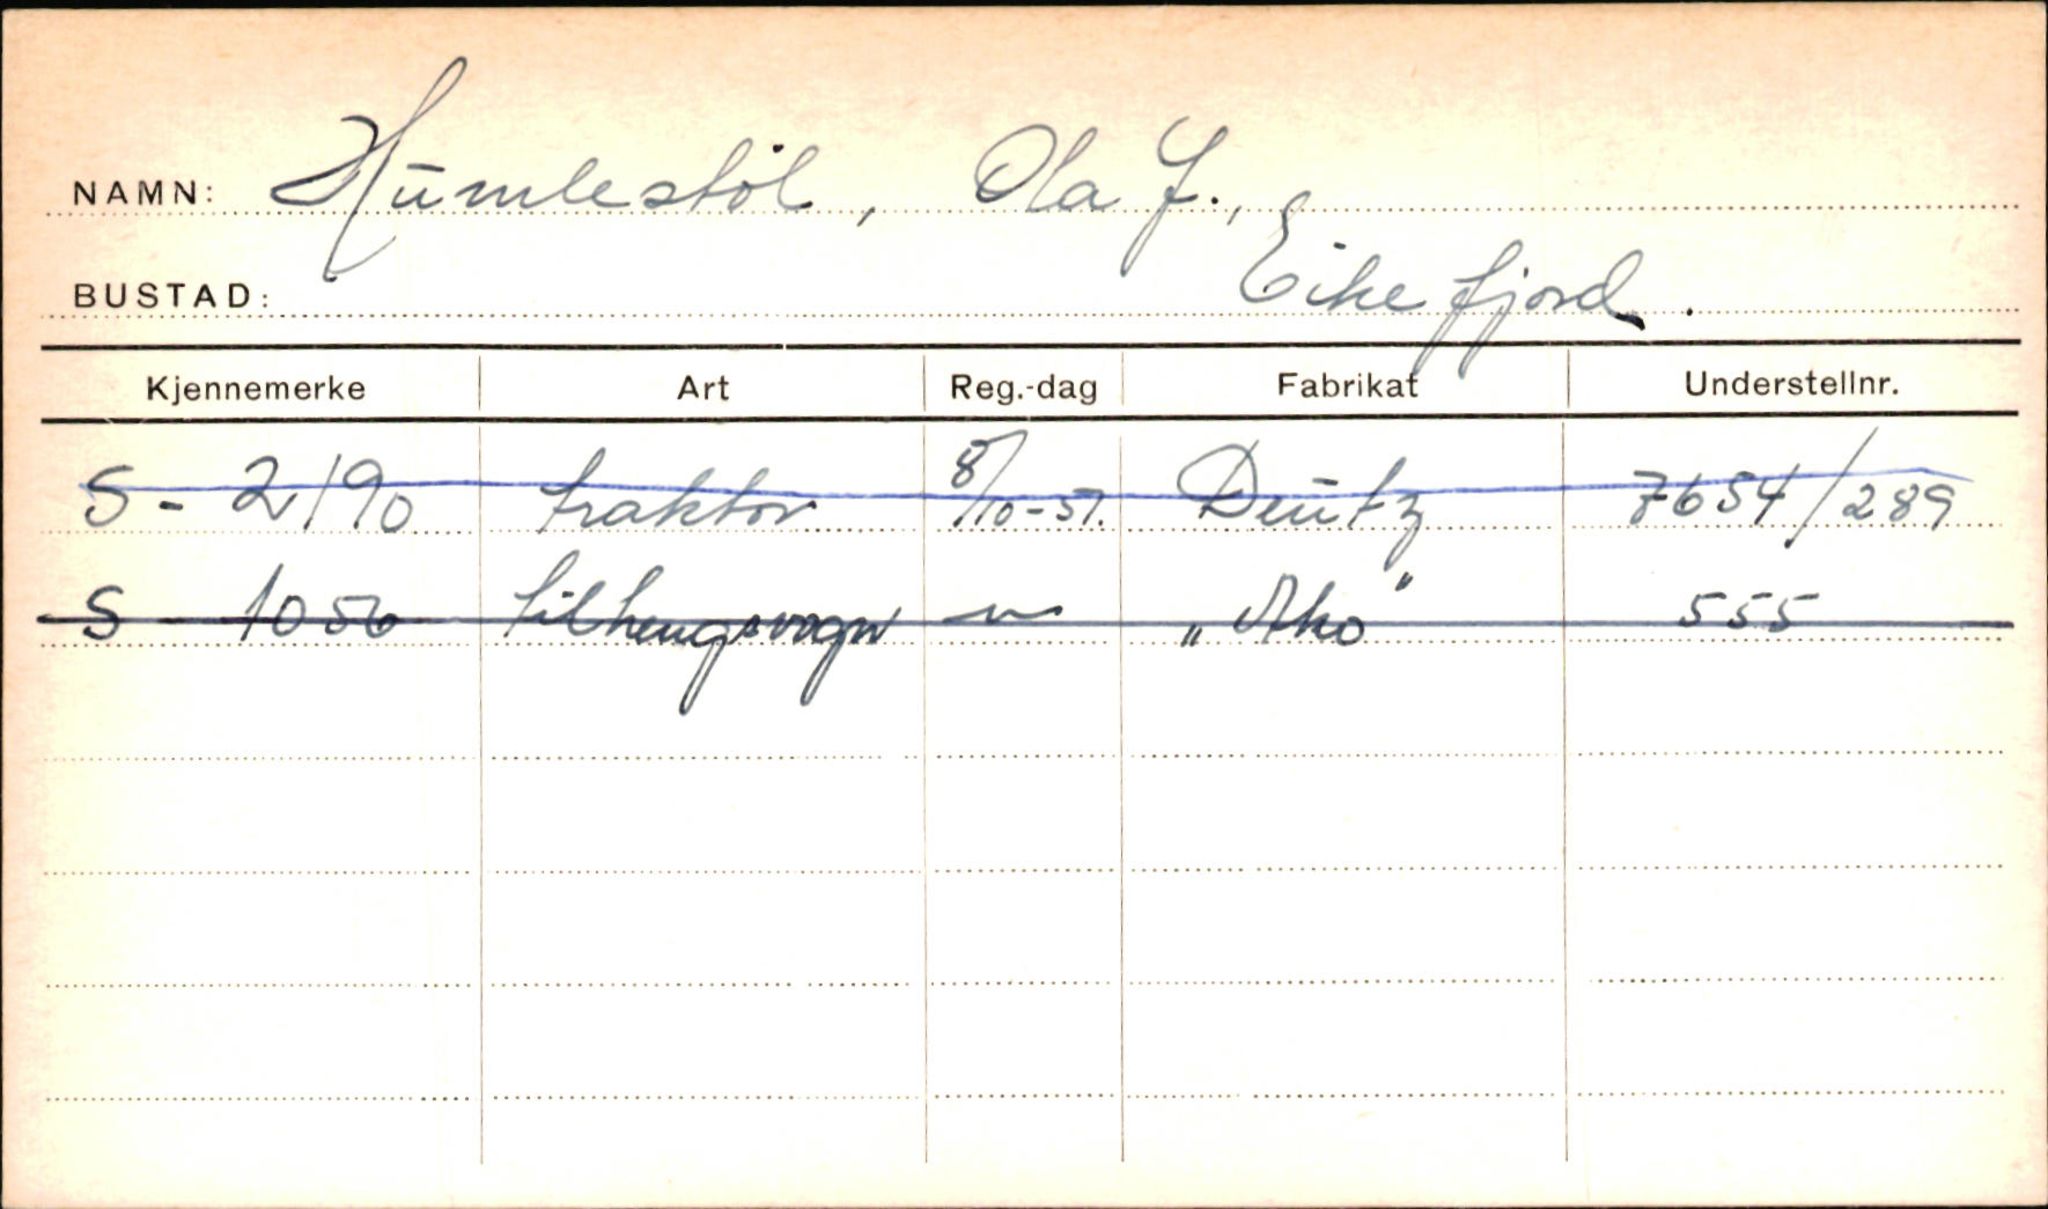 NAMN: Humlestöl, Ola J.,
BUSTAD: Eikefjord.
Kjennemerke Art Reg.-dag Fabrikat Understellnr.
S - 2190 traktor 8/10-57. Deutz 7654/289
S - 1056 tilhengsvogn — " — „Ako" 555